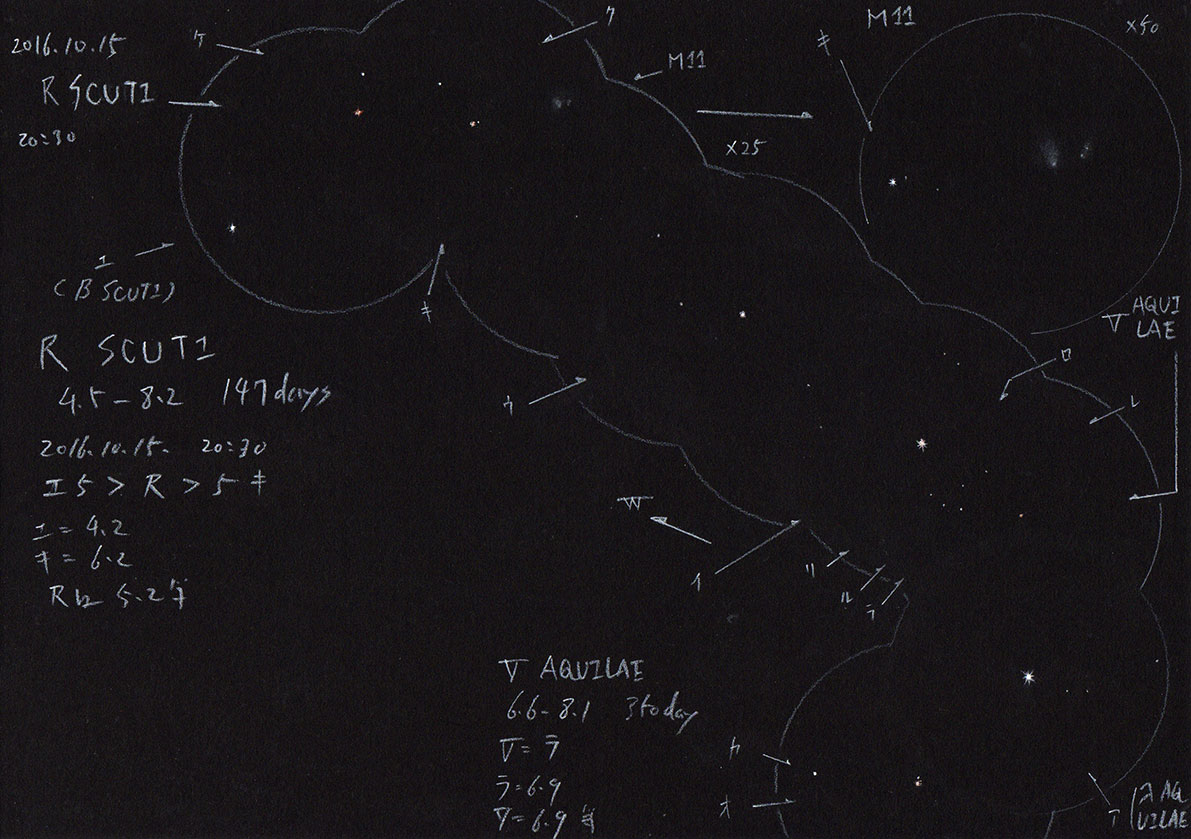 2016.10.15
R SCUTI
20:30
ケ
ク
M11
×25
M11
×50
キ
エ
(β SCUTI)
キ
R SCUTI
4.5-8.2 147days
2016.10.15. 20:30
エ5>R>5キ
エ=4.2
キ=6.2
Rは5.2等
ウ
W
イ
リ
ル
ラ
V AQUI
LAE
ロ
レ
V AQUILAE
6.6-8.1 350day
V=ラ
ラ=6.9
V=6.9等
カ
オ
ア
(λ AQ
UILAE